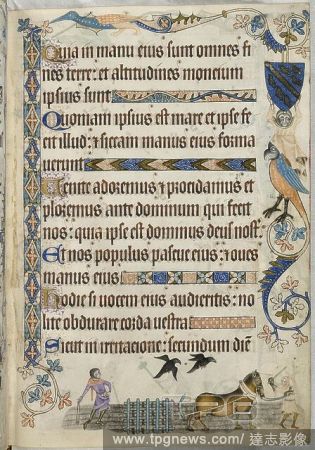 Quia in manu eius sunt omnes fi
nes terre: et altitudines moncium
ipsius sunt
Quoniam ipsius est mare et ipse fe
cit illud: et siccam manus eius forma
uerunt
Venite adoremus et procidamus et
ploremus ante dominum qui fecit
nos: quia ipse est dominus deus nost.
Et nos populus pascue eius: et oues
manus eius
Hodie si uocem eius audieritis: no
lite obdurare corda uestra
Sicut in irritacione: secundum diē
www.tpgnews.com/達志影像